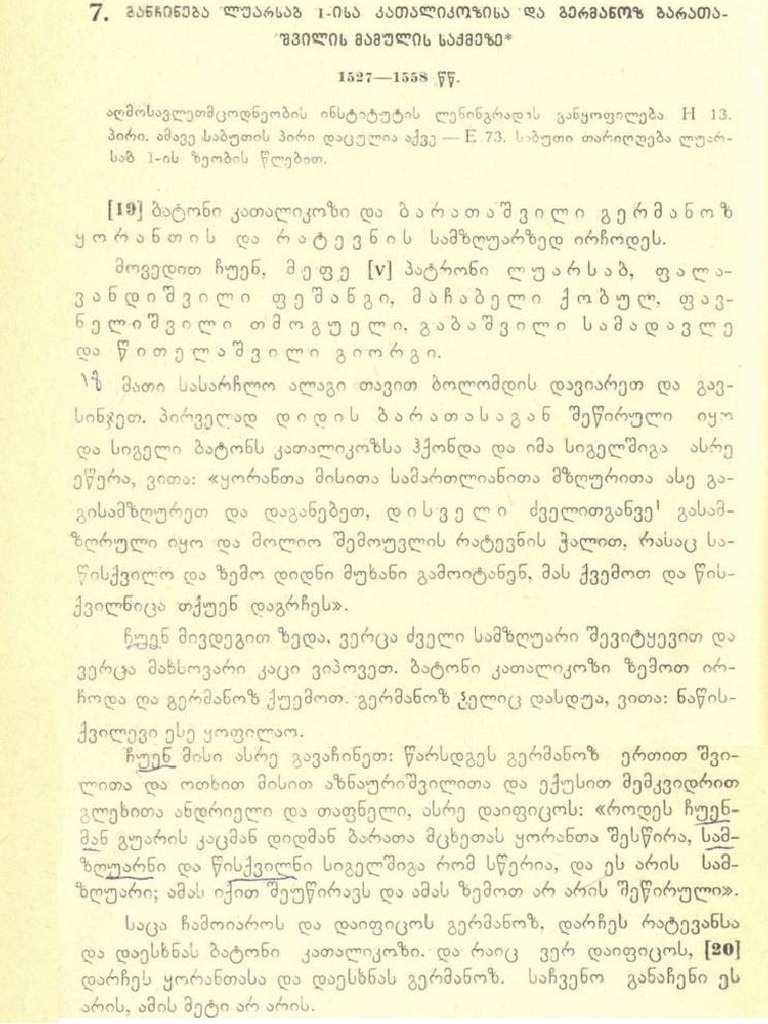 7. განჩინება ლუარსაბ I-ისა კათალიკოზისა და გერმანოზ ბარათა-
შვილის მამულის საქმეზე*
1527—1558 წწ.
აღმოსავლეთმცოდნეობის ინსტიტუტის ლენინგრადის განყოფილება H 13.
პირი. ამავე საბუთის პირი დაცულია აქვე — E 73. საბუთი თარიღდება ლუარ-
საბ I-ის ზეობის წლებით.
[19] ბატონი კათალიკოზი და ბარათაშვილი გერმანოზ
ყორანთის და რატევნის სამზღუარზედ ირჩოდეს.
მოვედით ჩუენ, მეფე [V] პატრონი ლუარსაბ, ფალა-
ვანდიშვილი ფეშანგი, მაჩაბელი ქობულ, ფავ-
ნელიშვილი თმოგუელი, გაბაშვილი სამადავლე
და წითელაშვილი გიორგი.
მათი სასარჩლო ალაგი თავით ბოლომდის დავიარეთ და გავ-
სინჯეთ. პირველად დიდის ბარათასაგან შეწირული იყო
და სიგელი ბატონს კათალიკოზსა ჰქონდა და იმა სიგელშიგა ასრე
ეწერა, ვითა: «ყორანთა მისითა სამართლიანითა მზღურითა ასე გა-
გისამზღურეთ და დაგანებეთ, დისველი ძველითგანვე¹ გასამ-
ზღრული იყო და მოლიო შემოუვლის რატევნის ჭალით, რასაც სა-
წისქვილო და ზემო დიდნი მუხანი გამოიტანენ, მას ქვემოთ და წის-
ქვილნიცა თქუენ დაგრჩეს».
ჩუენ მივდეგით ზედა, ვერცა ძველი სამზღუარი შევიტყევით და
ვერცა მახსოვარი კაცი ვიპოვეთ. ბატონი კათალიკოზი ზემოთ ირ-
ჩოდა და გერმანოზ ქუემოთ. გერმანოზ ჴელიც დასდუა, ვითა: ნაწის-
ქვილევი ესე ყოფილაო.
ჩუენ მისი ასრე გავაჩინეთ: წარსდგეს გერმანოზ ერთით შვი-
ლითა და ოთხით მისით აზნაურიშვილითა და ექუსით მემკვიდრით
გლეხითა ანდრიელი და თაფნელი, ასრე დაიფიცოს: «როდეს ჩუენ-
მან გუარის კაცმან დიდმან ბარათა მცხეთას ყორანთა შესწირა, სამ-
ზღუარნი და წისქვილნი სიგელშიგა რომ სწერია, და ეს არის სამ-
ზღუარი; ამას იქით შეუწირავს და ამას ზემოთ არ არის შეწირული».
საცა ჩამოიაროს და დაიფიცოს გერმანოზ, დარჩეს რატევანსა
და დაესხნას ბატონი კათალიკოზი. და რაიც ვერ დაიფიცოს, [20]
დარჩეს ყორანთასა და დაესხნას გერმანოზ. საჩვენო განაჩენი ეს
არის, ამის მეტი არ არის.